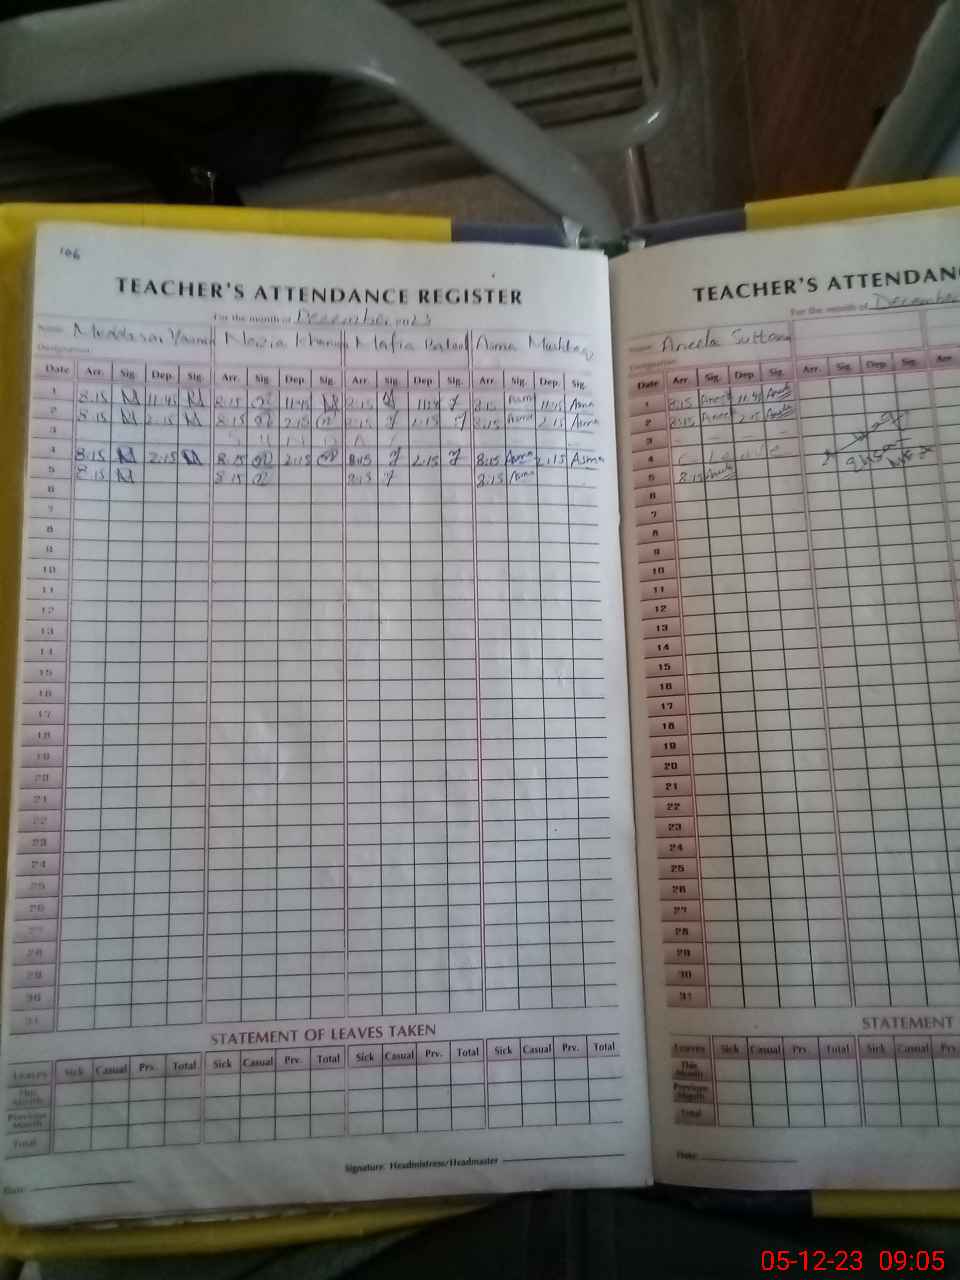 106
TEACHER'S ATTENDANCE REGISTER
For the month of December 2023
Name Nazia Asma
Designation
Date Arr. Sig. Dep. Sig. Arr. Sig. Dep. Sig. Arr. Sig. Dep. Sig. Arr. Sig. Dep. Sig.
1 8:15 M 11:45 M 8:15 11:45 8:15 8:15 Asma 11:45 Asma
2 8:15 M 2:15 M 8:15 2:15 8:15 7 2:15 7 8:15 Asma 2:15 Asma
3 S U N D A Y
4 8:15 M 2:15 M 8:15 2:15 8:15 7 2:15 7 8:15 Asma 2:15 Asma
5 8:15 M 8:15 8:15 7 8:15 Asma
6
7
8
9
10
11
12
13
14
15
16
17
18
19
20
21
22
23
24
25
26
27
28
29
30
31
STATEMENT OF LEAVES TAKEN
Leaves Sick Casual Prv. Total Sick Casual Prv. Total Sick Casual Prv. Total Sick Casual Prv. Total
This Month
Previous Month
Total
Signature: Headmistress/Headmaster
Date:
TEACHER'S ATTENDAN
For the month of December
Name Aneela
Designation
Date Arr. Sig. Dep. Sig. Arr. Sig. Dep. Sig. Arr.
1 8:15 11:45
2 8:15 2:15
3
4 C - Leave
5 8:15
6
7
8
9
10
11
12
13
14
15
16
17
18
19
20
21
22
23
24
25
26
27
28
29
30
31
STATEMENT
Leaves Sick Casual Prv. Total Sick Casual Prv.
This Month
Previous Month
Total
Date:
05-12-23 09:05